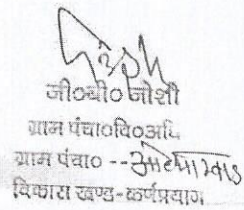 जी०बी० जोशी
ग्राम पंचा०वि०अधि
ग्राम पंचा० --
विकास खण्ड-कर्णप्रयाग